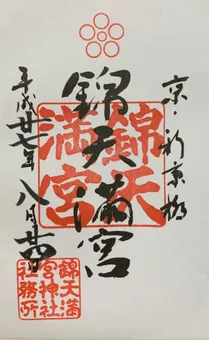 京・新京極
錦天満宮
錦天
満宮
平成廿七年八月廿四
錦天満
宮神社
社務所